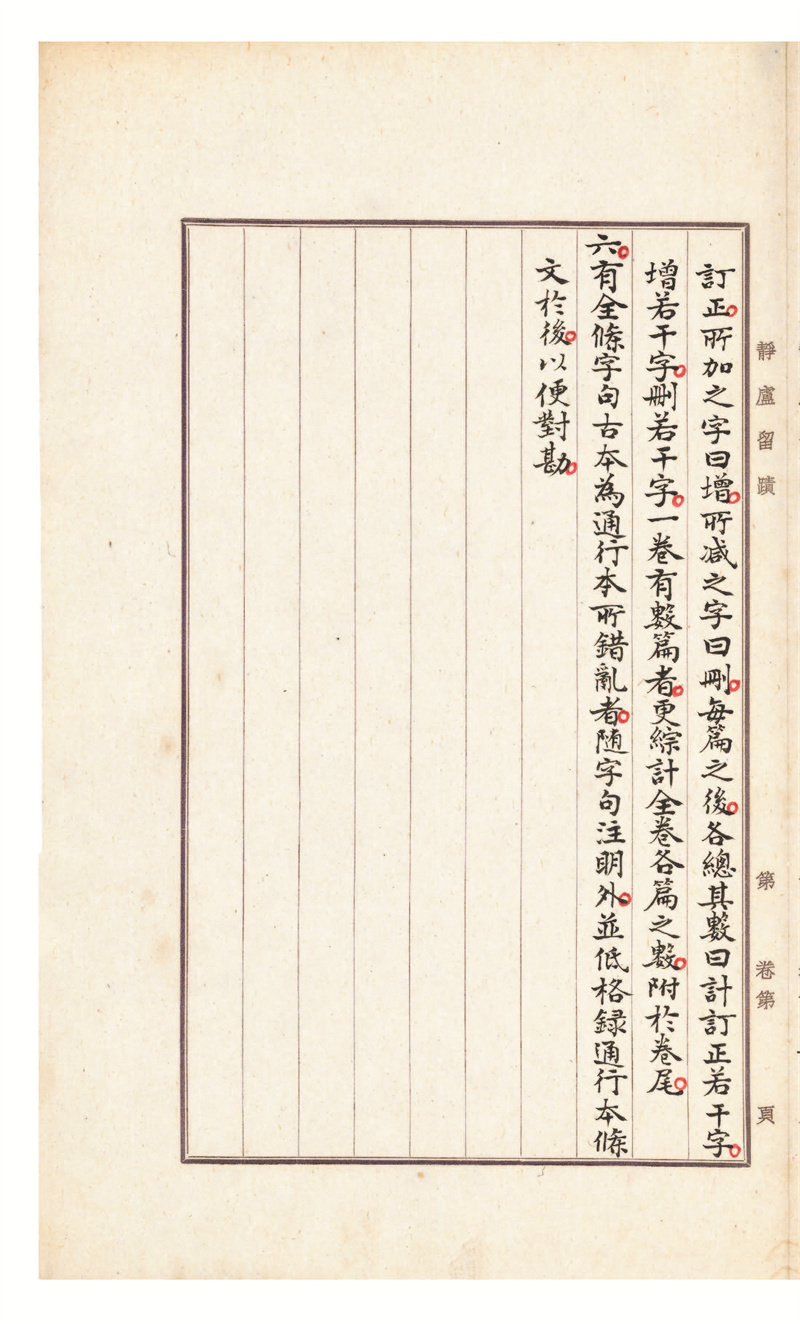 靜盧留蹟
第　卷第　頁
訂正。所加之字曰增。所減之字曰刪。每篇之後。各總其數曰計訂正若干字。
增若干字。刪若干字。一卷有數篇者。更綜計全卷各篇之數。附於卷尾。
六。有全條字句古本為通行本所錯亂者。隨字句注明外。並低格録通行本條
文於後。以便對勘。